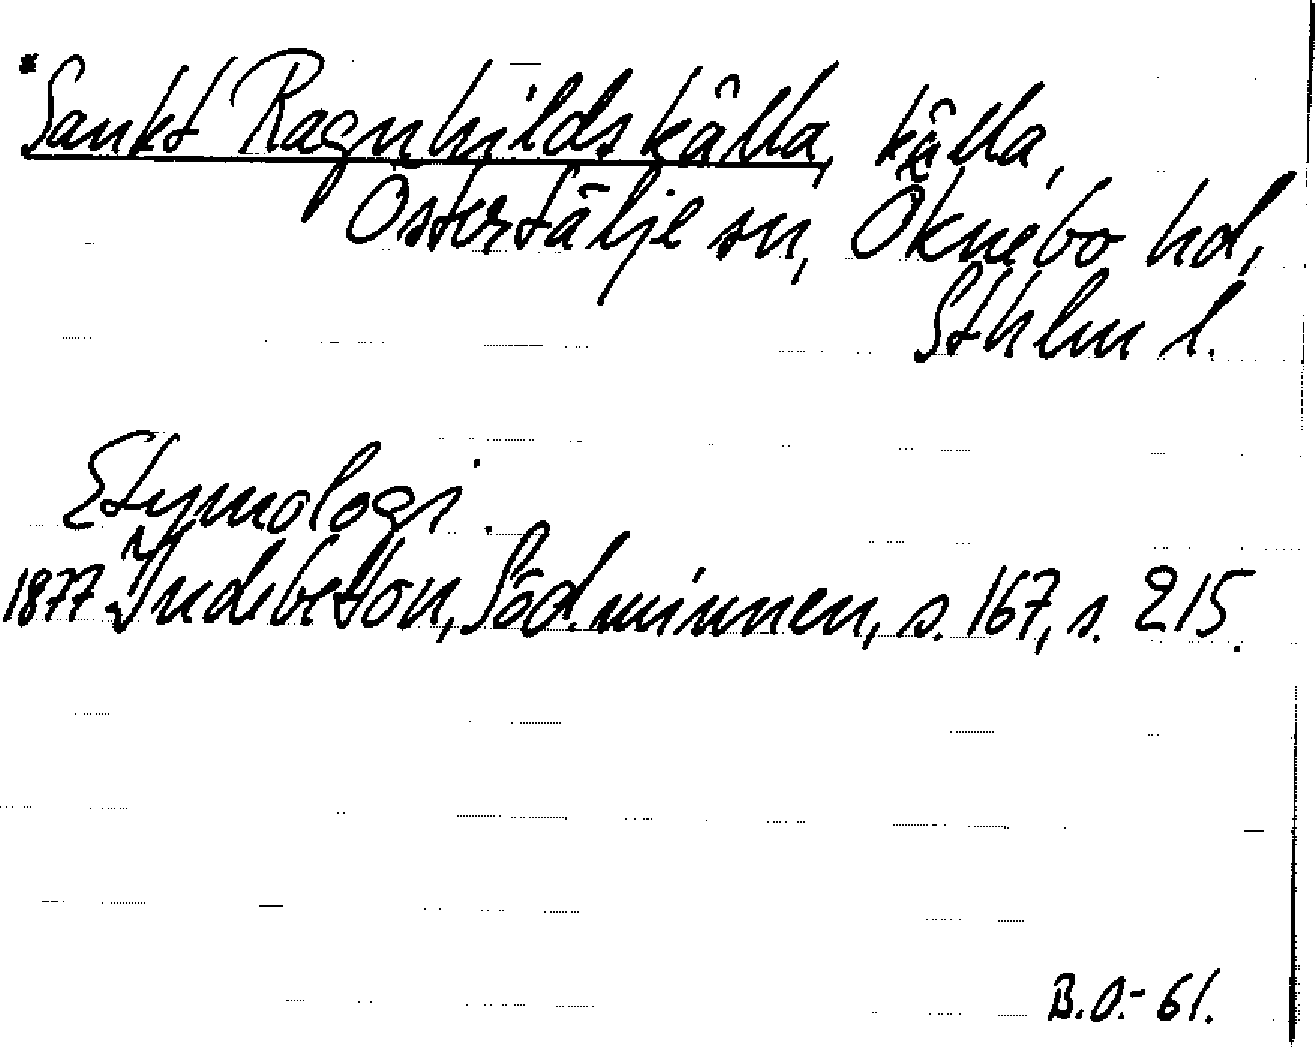 *Sankt Ragnhilds källa, källa,
Östertälje sn, Öknebo hd,
Sthlm l.
Etymologi:
1877 Indebetou, Söd.minnen, s. 167, s. 215.
B.O.-61.